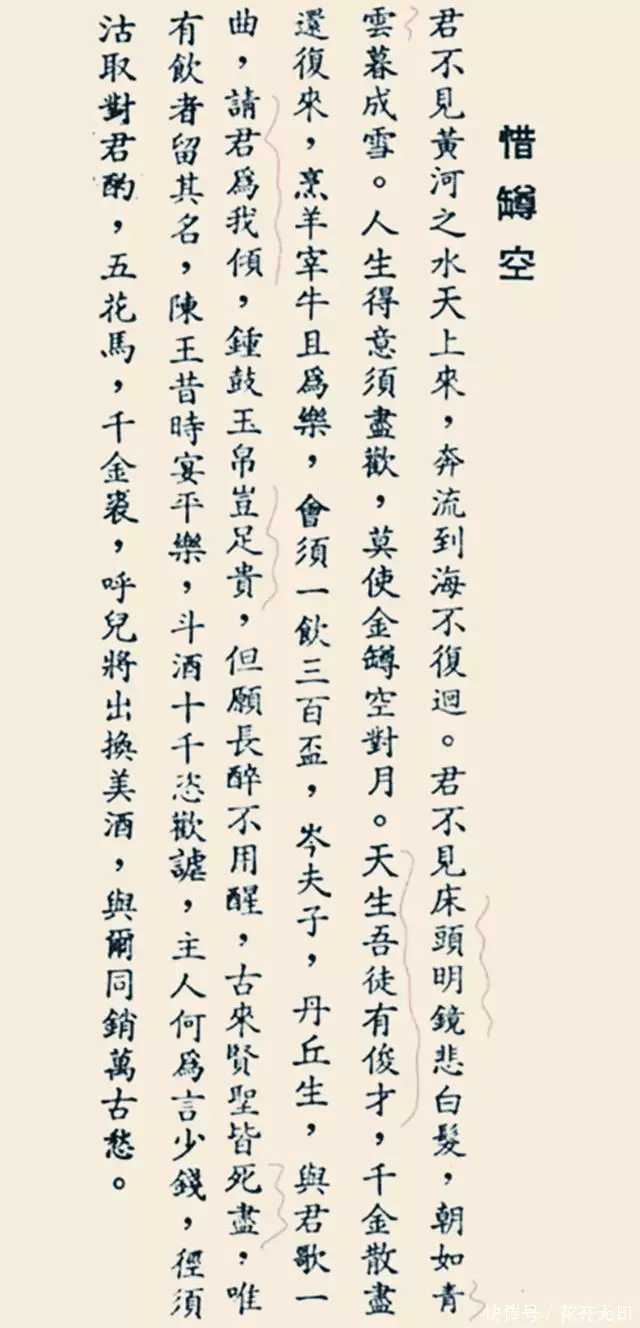 惜罇空
君不見黃河之水天上來，奔流到海不復迴。君不見床頭明鏡悲白髮，朝如青
雲暮成雪。人生得意須盡歡，莫使金罇空對月。天生吾徒有俊才，千金散盡
還復來，烹羊宰牛且為樂，會須一飲三百盃，岑夫子，丹丘生，與君歌一
曲，請君為我傾，鍾鼓玉帛豈足貴，但願長醉不用醒，古來賢聖皆死盡，唯
有飲者留其名，陳王昔時宴平樂，斗酒十千恣歡謔，主人何為言少錢，徑須
沽取對君酌，五花馬，千金裘，呼兒將出換美酒，與爾同銷萬古愁。
快传号/花开无田